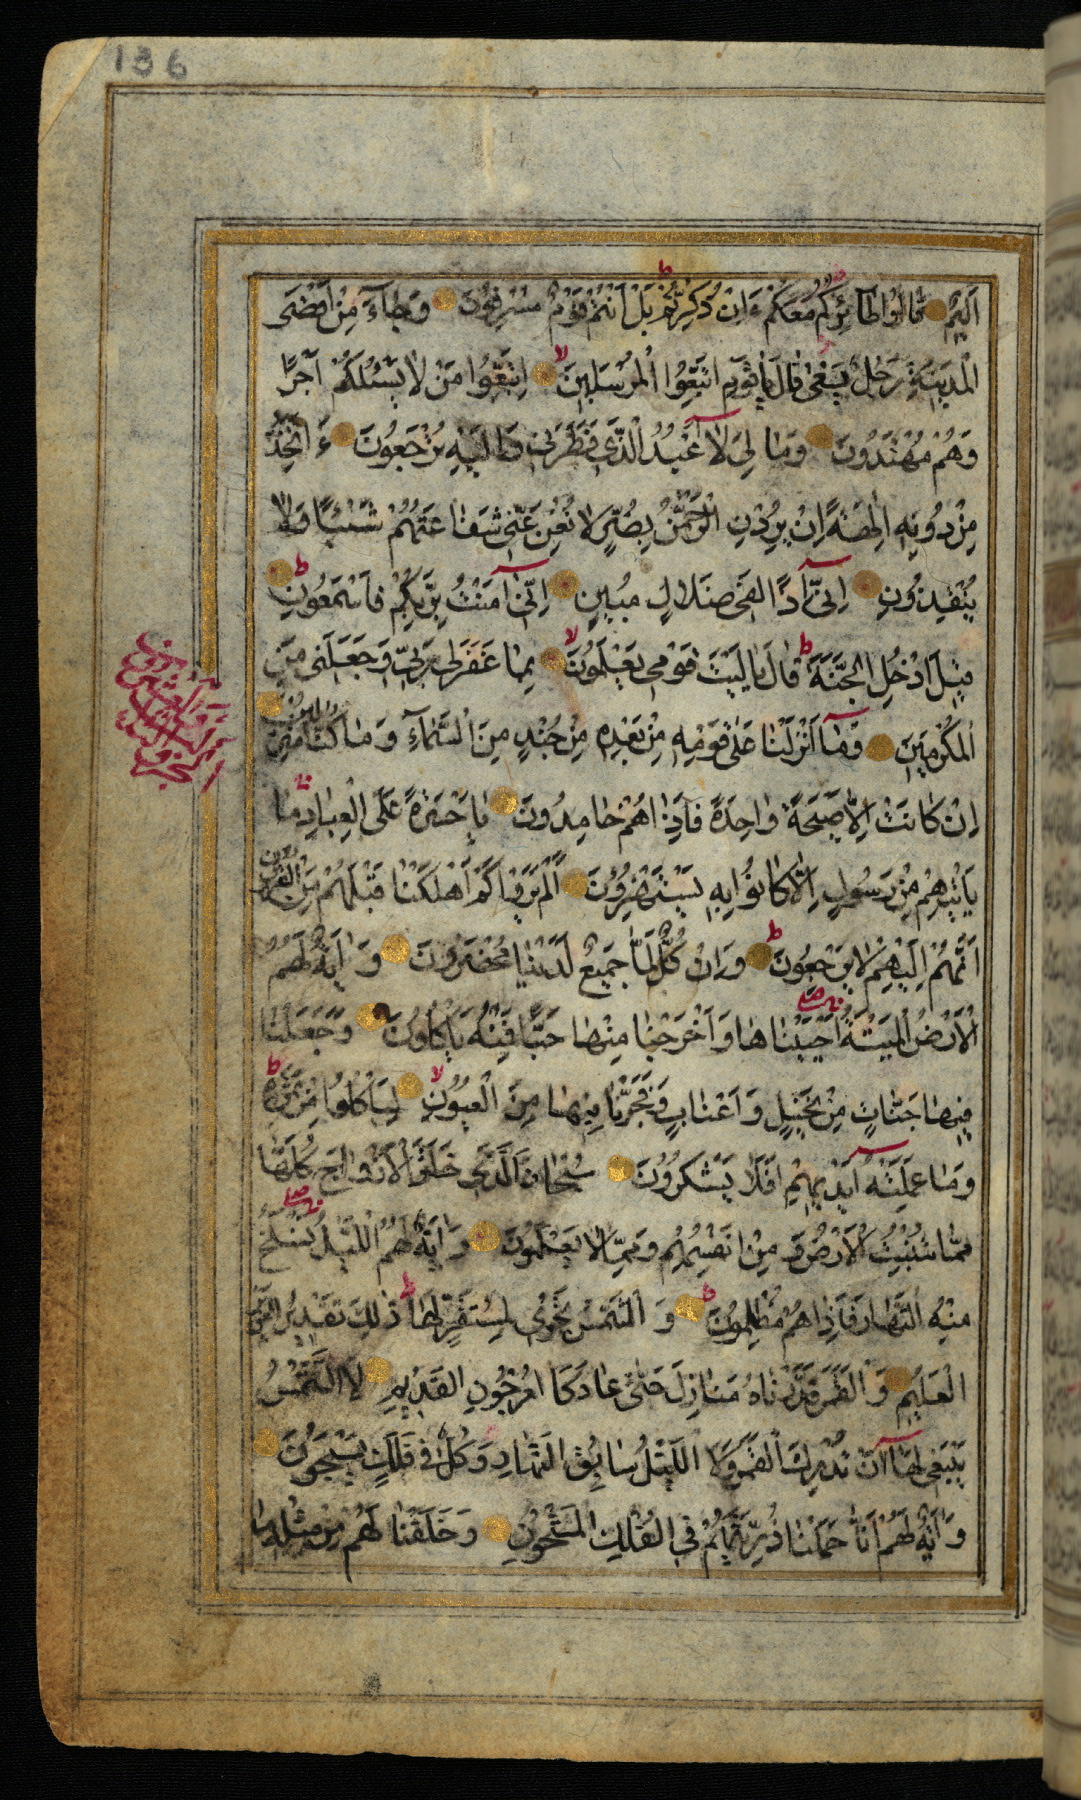 136
اَلِيمٌ قَالُوا طَآئِرُكُمْ مَعَكُمْ ءَاِنْ ذُكِّرْتُمْ بَلْ اَنْتُمْ قَوْمٌ مُسْرِفُونَ وَجَآءَ مِنْ اَقْصَى
الْمَدِينَةِ رَجُلٌ يَسْعٰى قَالَ يَا قَوْمِ اتَّبِعُوا الْمُرْسَلِينَ اِتَّبِعُوا مَنْ لَا يَسْئَلُكُمْ اَجْرًا
وَهُمْ مُهْتَدُونَ وَمَا لِيَ لَا اَعْبُدُ الَّذِي فَطَرَنِي وَاِلَيْهِ تُرْجَعُونَ ءَاَتَّخِذُ
مِنْ دُونِهِ اٰلِهَةً اِنْ يُرِدْنِ الرَّحْمٰنُ بِضُرٍّ لَا تُغْنِ عَنِّي شَفَاعَتُهُمْ شَيْئًا وَلَا
يُنْقِذُونِ اِنِّي اِذًا لَفِي ضَلَالٍ مُبِينٍ اِنِّي اٰمَنْتُ بِرَبِّكُمْ فَاسْمَعُونِ
قِيلَ ادْخُلِ الْجَنَّةَ قَالَ يَا لَيْتَ قَوْمِي يَعْلَمُونَ بِمَا غَفَرَ لِي رَبِّي وَجَعَلَنِي مِنَ
الْمُكْرَمِينَ وَمَا اَنْزَلْنَا عَلٰى قَوْمِهِ مِنْ بَعْدِهِ مِنْ جُنْدٍ مِنَ السَّمَآءِ وَمَا كُنَّا مُنْزِلِينَ
اِنْ كَانَتْ اِلَّا صَيْحَةً وَاحِدَةً فَاِذَا هُمْ خَامِدُونَ يَا حَسْرَةً عَلَى الْعِبَادِ مَا
يَأْتِيهِمْ مِنْ رَسُولٍ اِلَّا كَانُوا بِهِ يَسْتَهْزِؤُنَ اَلَمْ يَرَوْا كَمْ اَهْلَكْنَا قَبْلَهُمْ مِنَ الْقُرُونِ
اَنَّهُمْ اِلَيْهِمْ لَا يَرْجِعُونَ وَاِنْ كُلٌّ لَمَّا جَمِيعٌ لَدَيْنَا مُحْضَرُونَ وَاٰيَةٌ لَهُمُ
الْاَرْضُ الْمَيْتَةُ اَحْيَيْنَاهَا وَاَخْرَجْنَا مِنْهَا حَبًّا فَمِنْهُ يَأْكُلُونَ وَجَعَلْنَا
فِيهَا جَنَّاتٍ مِنْ نَخِيلٍ وَاَعْنَابٍ وَفَجَّرْنَا فِيهَا مِنَ الْعُيُونِ لِيَأْكُلُوا مِنْ ثَمَرِهِ
وَمَا عَمِلَتْهُ اَيْدِيهِمْ اَفَلَا يَشْكُرُونَ سُبْحَانَ الَّذِي خَلَقَ الْاَزْوَاجَ كُلَّهَا
مِمَّا تُنْبِتُ الْاَرْضُ وَمِنْ اَنْفُسِهِمْ وَمِمَّا لَا يَعْلَمُونَ وَاٰيَةٌ لَهُمُ اللَّيْلُ نَسْلَخُ
مِنْهُ النَّهَارَ فَاِذَا هُمْ مُظْلِمُونَ وَالشَّمْسُ تَجْرِي لِمُسْتَقَرٍّ لَهَا ذٰلِكَ تَقْدِيرُ الْعَزِيزِ
الْعَلِيمِ وَالْقَمَرَ قَدَّرْنَاهُ مَنَازِلَ حَتّٰى عَادَ كَالْعُرْجُونِ الْقَدِيمِ لَا الشَّمْسُ
يَنْبَغِي لَهَا اَنْ تُدْرِكَ الْقَمَرَ وَلَا اللَّيْلُ سَابِقُ النَّهَارِ وَكُلٌّ فِي فَلَكٍ يَسْبَحُونَ
وَاٰيَةٌ لَهُمْ اَنَّا حَمَلْنَا ذُرِّيَّتَهُمْ فِي الْفُلْكِ الْمَشْحُونِ وَخَلَقْنَا لَهُمْ مِنْ مِثْلِهِ مَا